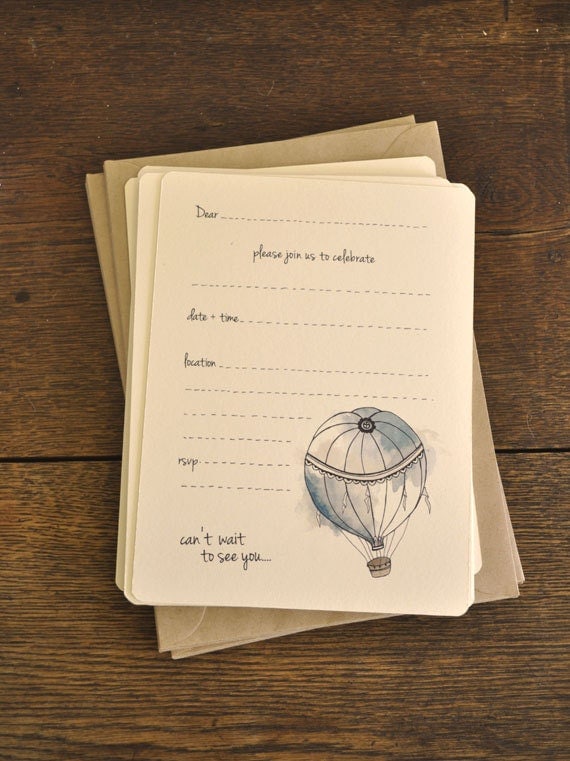 Dear
please join us to celebrate
date + time
location
rsvp
can't wait
to see you....